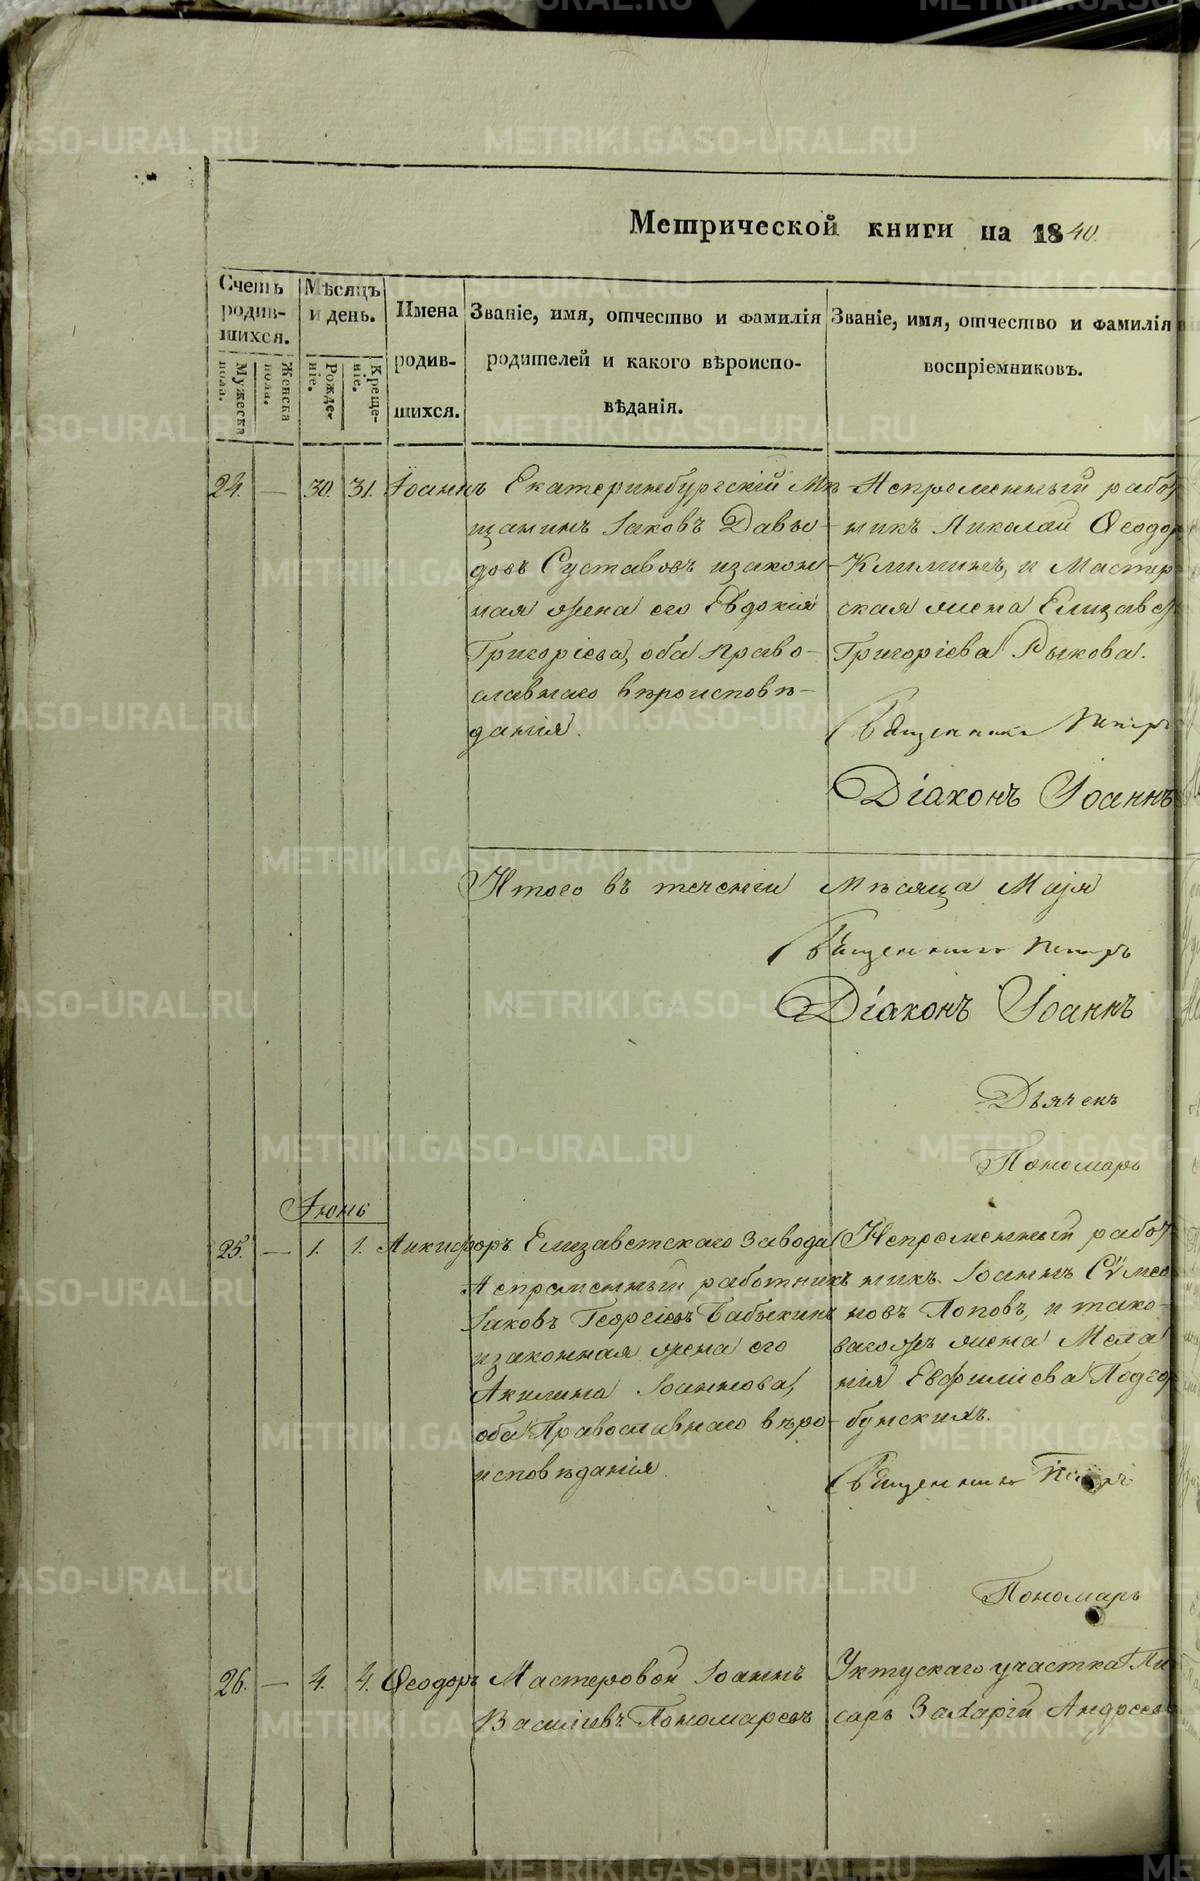 Метрической книги на 1840.
Счетъ родившихся.
Мужеска пола.
Женска пола.
Мѣсяцъ и день.
Рождение.
Крещение.
Имена родившихся.
Званіе, имя, отчество и фамилія
родителей и какого вѣроиспо-
вѣданія.
Званіе, имя, отчество и фамилія
воспріемниковъ.
24. — 30. 31. Іоаннъ
Екатеринбургскій Мѣ-
щанинъ Іаковъ Давы-
довъ Суставовъ изакон-
ная жена его Евдокія
Григоріева, оба право-
славнаго вѣроисповѣ-
данія.
Непременный работ
никъ Николай Ѳеодор
Климинъ, и Мастер
ская жена Елизавет
Григоріева Рыкова.
Священникъ Петръ
Діаконъ Іоаннъ
Итого въ теченіи Мѣсяца Маія
Священникъ Петръ
Діаконъ Іоаннъ
Дьячекъ
Пономарь
Іюнь
25. — 1. 1. Никифоръ
Елизаветскаго завода
Непременный работникъ
Іаковъ Георгіевъ Бабыкинъ
изаконная жена его
Акилина Іоаннова,
оба Православнаго вѣро-
исповѣданія.
Непременный работ
никъ Іоаннъ Сѵмео
новъ Поповъ, и тако-
вагожъ жена Мела
нія Евфиміева Подгор
бунскихъ.
Священникъ Петръ
Пономарь
26. — 4. 4. Ѳеодоръ
Мастеровой Іоаннъ
Василіевъ Пономаревъ
Уктускаго участка Пи
сарь Захарій Андреевъ
METRIKI.GASO-URAL.RU